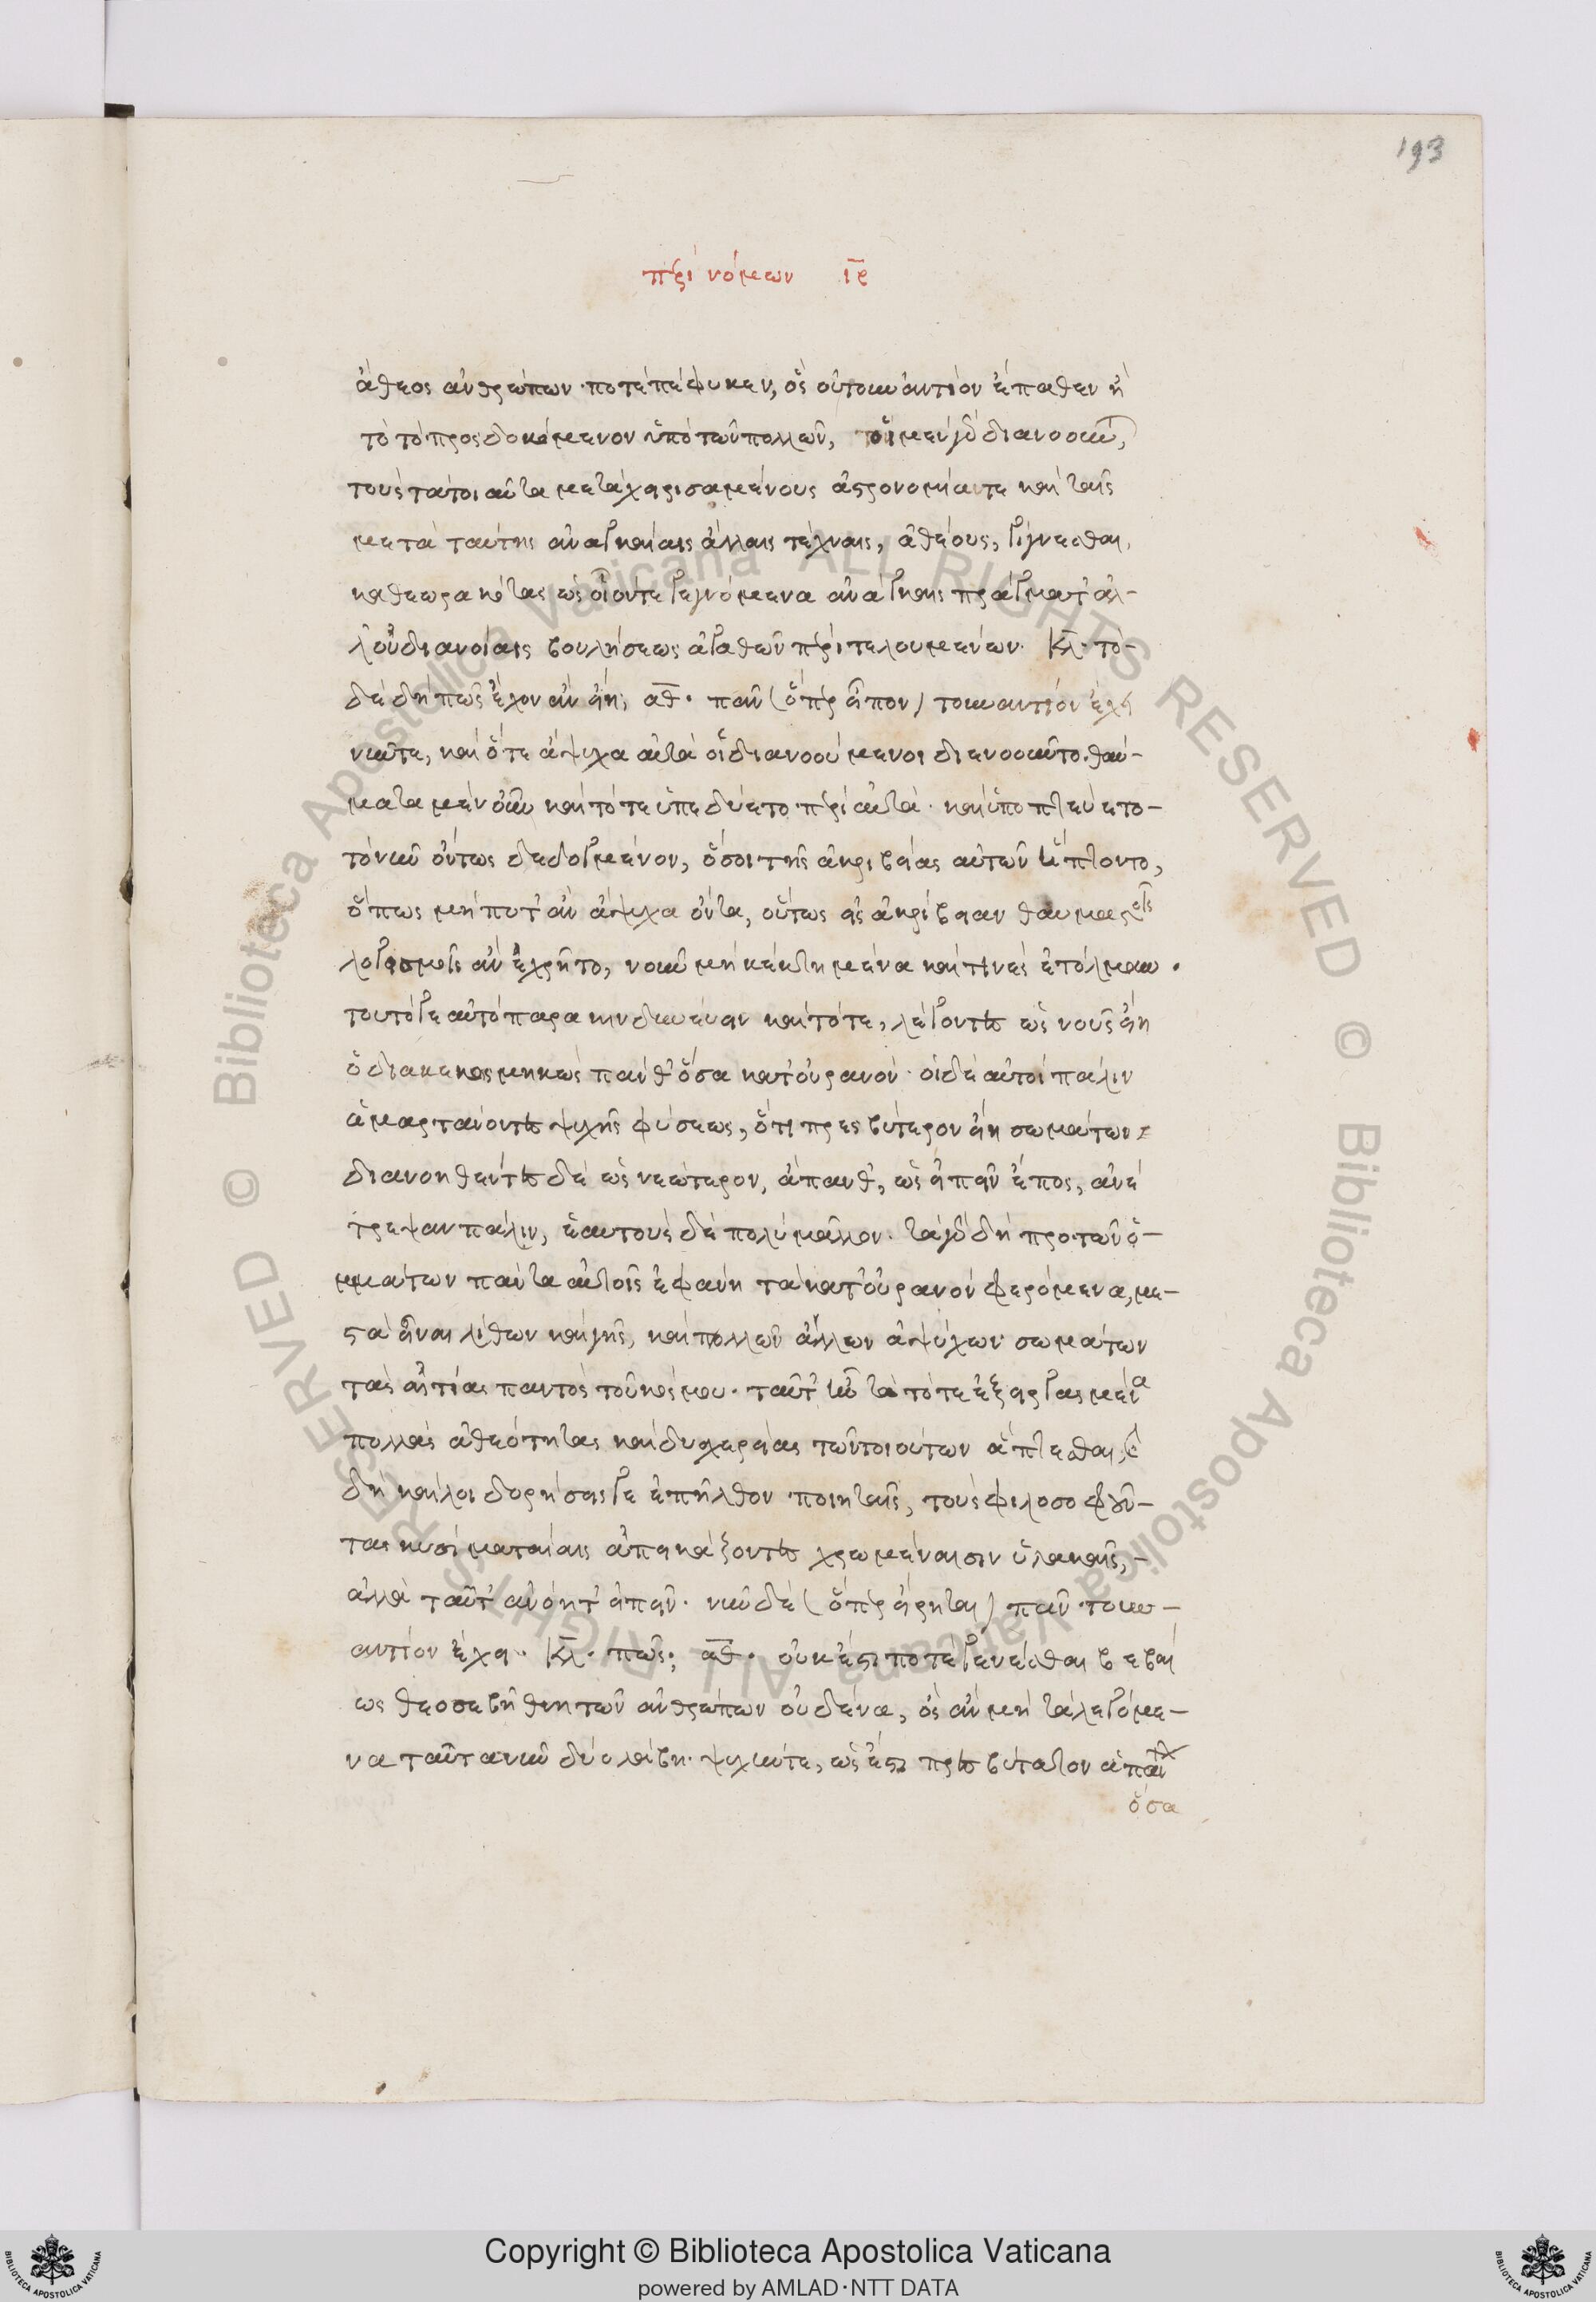 193
περὶ νόμων ιβ
ἄθεος ἀνθρώπων ποτὲ πέφυκεν, ὃς οὐ τοὐναντίον ἔπαθεν ἢ
τὸ τὸ προσδοκώμενον ὑπὸ τῶν πολλῶν, οἱ μὲν γὰρ διανοοῦν͂
τοὺς τὰ τοιαῦτα μεταχειρισαμένους ἀστρονομίαντε καὶ ταῖς
μετὰ ταύτης ἀναγκαίαις ἄλλαις τέχναις, ἀθέους, γίγνεσθαι,
καθεωρακότας ὡς οἷόντε γιγνόμενα ἀνάγκαις πράγματ' ἀλ-
λ' οὐ διανοίαις βουλήσεως ἀγαθῶν πέρι τελουμένων. Κλ. τὸ-
δὲ δὴ πῶς ἔχον ἂν εἴη; αθ. πᾶν (ὅπερ εἶπον) τοὐναντίον ἔχει
νῦντε, καὶ ὅτε ἄψυχα αὐτὰ οἱ διανοούμενοι διενοοῦντο. θαύ-
ματα μὲν οὖν καὶ τότε ὑπεδύετο περὶ αὐτά. καὶ ὑποπτεύετο-
τὸ νῦν ὄντως δεδογμένον, ὅσοι τῆς ἀκριβείας αὐτῶν ἥπτοντο,
ὅπως μήποτ' ἂν ἄψυχα ὄντα, οὕτως εἰς ἀκρίβειαν θαυμαστοῖς
λογισμοῖς ἂν ἐχρῆτο, νοῦν μὴ κεκτημένα καὶ τινὲς ἐτόλμων.
τουτόγε αὐτὸ παρακινδυνεύειν καὶ τότε, λέγοντες ὡς νοῦς εἴη
ὁ διακεκοσμηκὼς πάνθ' ὅσα κατ' οὐρανόν. οἱ δὲ αὐτοὶ πάλιν
ἁμαρτάνοντες ψυχῆς φύσεως, ὅτι πρεσβύτερον εἴη σωμάτων
διανοηθέντες δὲ ὡς νεώτερον, ἅπανθ', ὡς εἰπεῖν ἔπος, ἀνέ
τρεψαν πάλιν, ἑαυτοὺς δὲ πολὺ μᾶλλον. τὰ γὰρ δὴ πρὸ τῶν ὀ-
μμάτων πάντα αὐτοῖς ἐφάνη τὰ κατ' οὐρανὸν φερόμενα, με-
στὰ εἶναι λίθων καὶ γῆς, καὶ πολλῶν ἄλλων ἀψύχων σωμάτων
τὰς αἰτίας παντὸς τοῦ κόσμου. ταῦτ' ἦν τὰ τότε ἐξεργασμένα
πολλὰς ἀθεότητας καὶ δυσχερείας τῶν τοιούτων ἅπτεσθαι, καὶ
δὴ καὶ λοιδορήσεις γε ἐπῆλθον ποιηταῖς, τοὺς φιλοσοφοῦν-
τας κυσὶ ματαίαις ἀπεικάζοντες χρωμέναισιν ὑλακαῖς,-
ἄλλα τ' αὖτ' ἀνόητ' εἰπεῖν. νῦν δὲ (ὅπερ εἴρηται) πᾶν τοὐν-
αντίον ἔχει. Κλ. πῶς; αθ. οὐκ ἔστι ποτὲ γενέσθαι βεβαί
ως θεοσεβῆ θνητῶν ἀνθρώπων οὐδένα, ὃς ἂν μὴ τὰ λεγόμε-
να ταῦτα νῦν δύο λάβῃ. ψυχήτε, ὡς ἔστι πρεσβύτατον ἁπάντων
ὅσα
© Biblioteca Apostolica Vaticana ALL RIGHTS RESERVED © Biblioteca Apostolica Vaticana ALL RIGHTS RESERVED
Copyright © Biblioteca Apostolica Vaticana
powered by AMLAD·NTT DATA
BIBLIOTECA APOSTOLICA VATICANA
BIBLIOTECA APOSTOLICA VATICANA